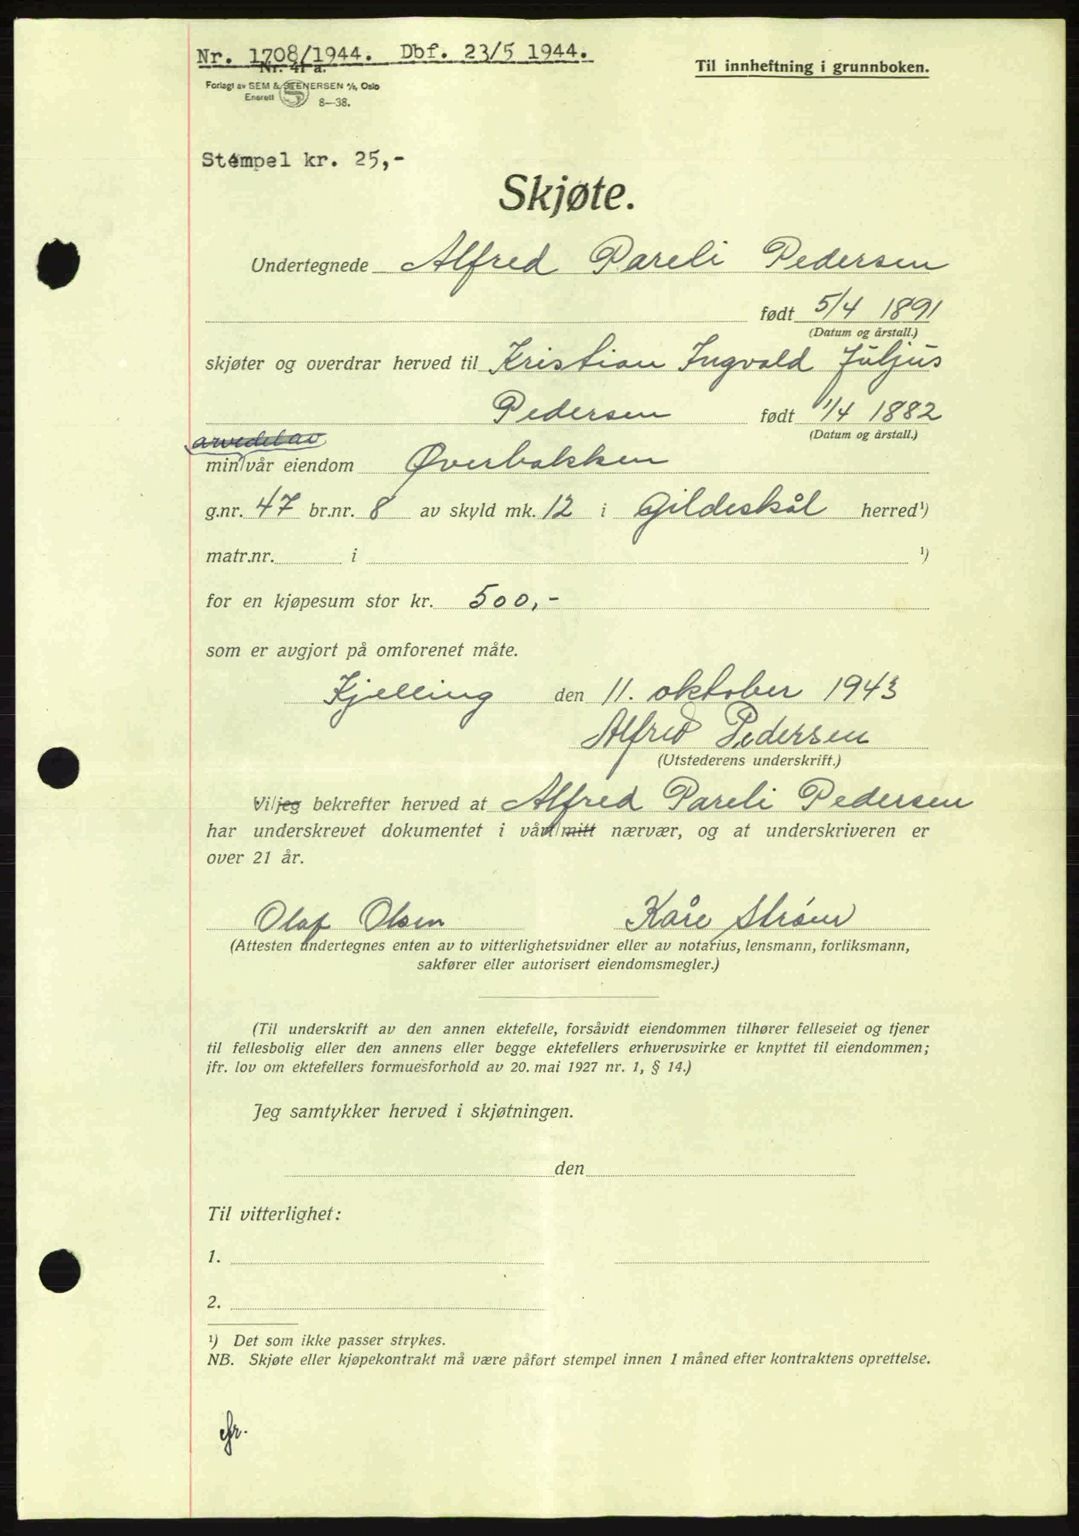 Nr. 1708/1944. Dbf. 23/5 1944.
Til innheftning i grunnboken.
Nr. 41 a.
Forlagt av SEM & STENERSEN A/S, Oslo
Enerett 8—38.
Stempel kr. 25,-
Skjøte.
Undertegnede Alfred Pareli Pedersen
født 5/4 1891
(Datum og årstall.)
skjøter og overdrar herved til Kristian Ingvald Juljus
Pedersen født 1/4 1882
(Datum og årstall.)
arvedel av
min/vår eiendom Øverbakken
g.nr. 47 br.nr. 8 av skyld mk. 12 i Gildeskål herred¹)
matr.nr. i ¹)
for en kjøpesum stor kr. 500,-
som er avgjort på omforenet måte.
Kjelling den 11. oktober 1943
Alfred Pedersen
(Utstederens underskrift.)
Vi/jeg bekrefter herved at Alfred Pareli Pedersen
har underskrevet dokumentet i vårt/mitt nærvær, og at underskriveren er
over 21 år.
Olaf Olsen Kåre Strøm
(Attesten undertegnes enten av to vitterlighetsvidner eller av notarius, lensmann, forliksmann,
sakfører eller autorisert eiendomsmegler.)
(Til underskrift av den annen ektefelle, forsåvidt eiendommen tilhører felleseiet og tjener
til fellesbolig eller den annens eller begge ektefellers erhvervsvirke er knyttet til eiendommen;
jfr. lov om ektefellers formuesforhold av 20. mai 1927 nr. 1, § 14.)
Jeg samtykker herved i skjøtningen.
den
Til vitterlighet:
1.
2.
¹) Det som ikke passer strykes.
NB. Skjøte eller kjøpekontrakt må være påført stempel innen 1 måned efter kontraktens oprettelse.